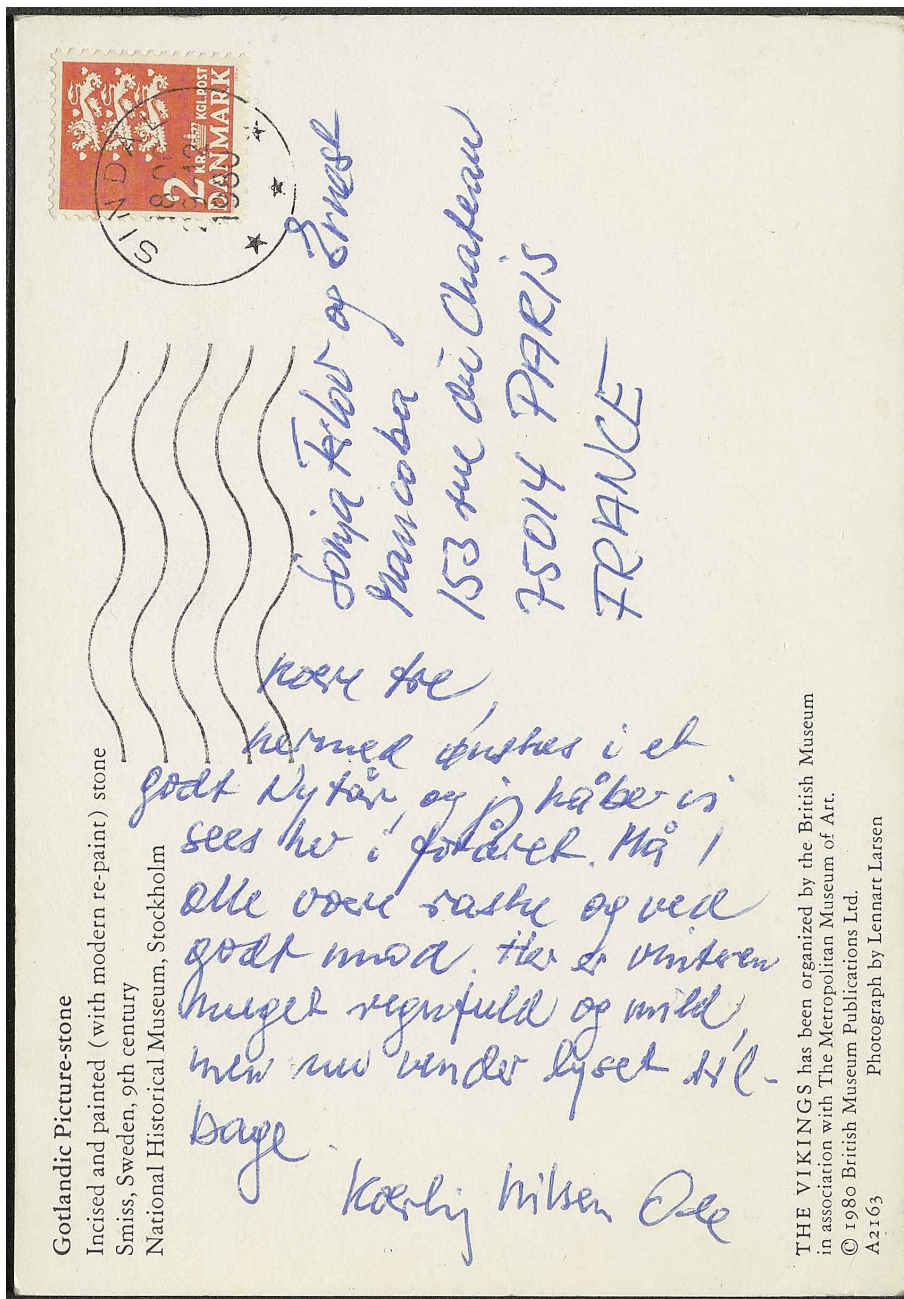 Gotlandic Picture-stone
Incised and painted (with modern re-paint) stone
Smiss, Sweden, 9th century
National Historical Museum, Stockholm
KGL.POST
2 KR.
DANMARK
SINDAL
1980
Sonja Ferlov og Ernest
Mancoba
153 rue du Chateau
75014 PARIS
FRANCE
Kære tre,
hermed ønskes i et
godt Nytår, og jeg håber vi
sees her i foråret. Må I
alle være raske og ved
godt mod. Her er vinteren
meget regnfuld og mild,
men nu vender lyset til-
bage.
Kærlig hilsen Ole
THE VIKINGS has been organized by the British Museum
in association with The Metropolitan Museum of Art.
© 1980 British Museum Publications Ltd.
A2163 Photograph by Lennart Larsen